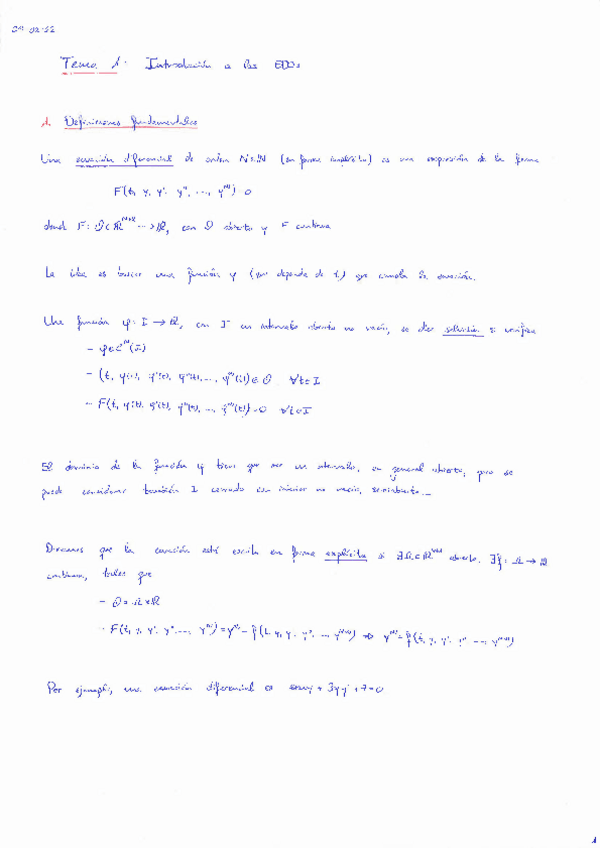 Tema 1: Introducción a las EDOs
1. Definiciones fundamentales
Una ecuación diferencial de orden N∈ℕ (en forma implícita) es una expresión de la forma
F(t, y, y', y'', ..., y^(N)) = 0
donde F: O⊂ℝ^(N+2) → ℝ, con O abierto y F continua
La idea es buscar una función y (que depende de t) que cumpla la ecuación.
Una función φ: I → ℝ, con I un intervalo abierto no vacío, se dice solución si verifica
- φ∈C^N(I)
- (t, φ(t), φ'(t), φ''(t), ..., φ^(N)(t)) ∈ O ∀t∈I
- F(t, φ(t), φ'(t), φ''(t), ..., φ^(N)(t)) = 0 ∀t∈I
El dominio de la función φ tiene que ser un intervalo, en general abierto, pero se
puede considerar también I cerrado con interior no vacío, semiabierto...
Diremos que la ecuación está escrita en forma explícita si ∃Ω⊂ℝ^(N+1) abierto, ∃f: Ω → ℝ
continua, tales que
- O = Ω×ℝ
- F(t, y, y', y'', ..., y^(N)) = y^(N) - f(t, y, y', y'', ..., y^(N-1)) ⇒ y^(N) = f(t, y, y', y'', ..., y^(N-1))
Por ejemplo, una ecuación diferencial es + 3yy' + 7 = 0
1